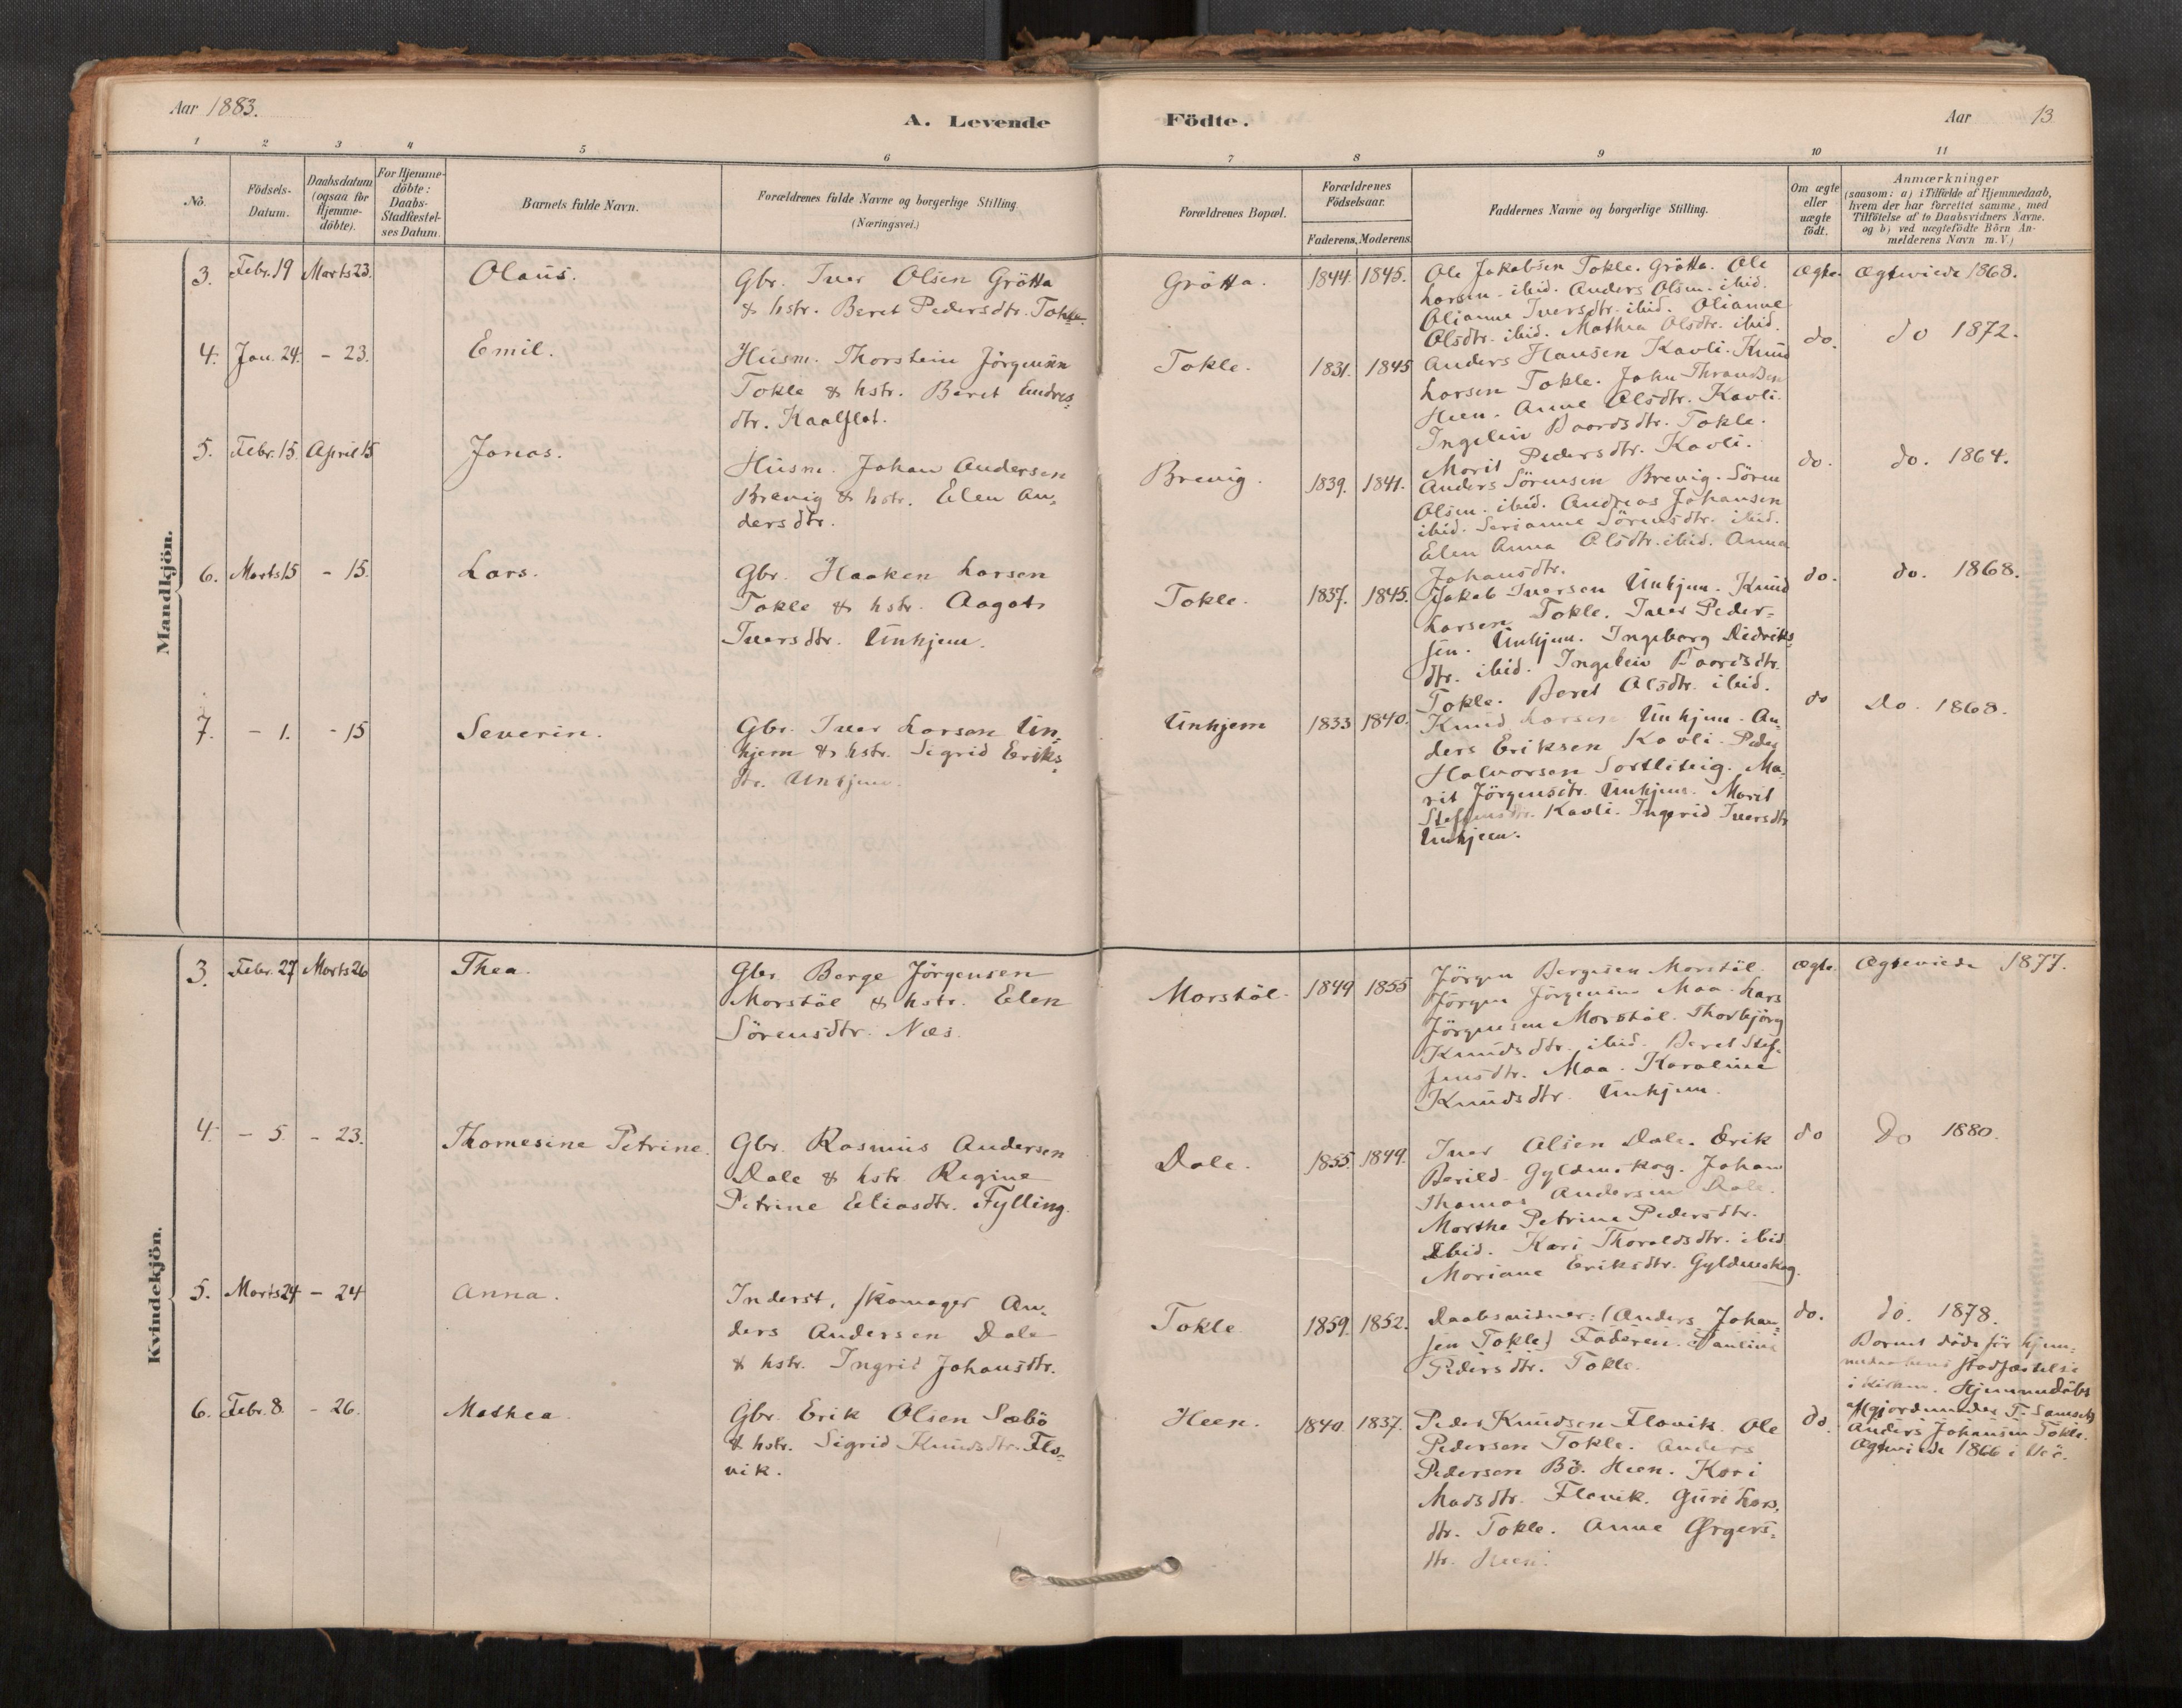 Aar 1883.
A. Levende Födte.
Aar 13
1 2 3 4 5 6 7 8 9 10 11
No.
Födsels-Datum.
Daabsdatum (ogsaa for Hjemme-döbte).
For Hjemme-döbte: Daabs-Stadfæstel-ses Datum.
Barnets fulde Navn.
Forældrenes fulde Navne og borgerlige Stilling.
(Næringsvei.)
Forældrenes Bopæl.
Forældrenes Födselsaar.
Faderens. Moderens.
Faddernes Navne og borgerlige Stilling.
Om ægte eller uægte födt.
Anmærkninger
(saasom: a) i Tilfælde af Hjemmedaab,
hvem der har forrettet samme, med
Tilföielse af to Daabsvidners Navne.
og b) ved uægtefödte Börn An-
melderens Navn m. V.)
Mandkjön.
3. Febr. 19 Marts 23. Olaus.
Gbr. Iver Olsen Grötta
& hstr. Beret Pedersdtr. Tokle.
Grötta. 1844. 1845.
Ole Jakobsen Tokle. Grötta. Ole
Larsen ibid. Anders Olsen ibid.
Olianne Iversdtr. ibid. Olianne
Olsdtr. ibid. Mathea Olsdtr. ibid.
Ægte. Ægteviede 1868.
4. Jan. 24. - 23. Emil.
Husm. Thorstein Jörgensen
Tokle & hstr. Beret Endres-
dtr. Kaalflot.
Tokle. 1831. 1845
Anders Hansen Kavli. Knud
Larsen Tokle. John Thrandsen
Heen. Anne Olsdtr. Kavli.
Ingeleiv Baardsdtr. Tokle.
Marit Pedersdtr. Kavli.
do. do 1872.
5. Febr. 15. April 15 Jonas.
Husm. Johan Andersen
Brevig & hstr. Elen An-
dersdtr.
Brevig. 1839. 1841.
Anders Sörensen Brevig. Sören
Olsen ibid. Andreas Johansen
ibid. Serianne Sörensdtr. ibid.
Elen Anna Olsdtr. ibid. Anna
Johansdtr.
do. do. 1864.
6. Marts 15 - 15. Lars.
Gbr. Haaken Larsen
Tokle & hstr. Aagot
Iversdtr. Unhjem.
Tokle. 1837. 1845.
Jakob Iversen Unhjem. Knud
Larsen Tokle. Iver Peder-
sen Unhjem. Ingeborg Didriks-
dtr. ibid. Ingeleiv Baardsdtr.
Tokle. Beret Olsdtr. ibid.
do. do. 1868.
7. - 1. - 15 Severin.
Gbr. Iver Larsen Un-
hjem & hstr. Sigrid Eriks-
dtr. Unhjem.
Unhjem 1833 1840.
Knud Larsen Unhjem. An-
ders Eriksen Kavli. Peder
Halvorsen Sortliteig. Ma-
rit Jörgensdtr. Unhjem. Marit
Steffensdtr. Kavli. Ingerid Iversdtr
Unhjem.
do Do. 1868.
Kvindekjön.
3. Febr. 27 Marts 26 Thea.
Gbr. Berge Jörgensen
Morstöl & hstr. Elen
Sörensdtr. Næs.
Morstöl. 1849 1855
Jörgen Bergesen Morstöl.
Jörgen Jörgensen Maa. Lars
Jörgensen Morstöl. Thorbjörg
Knudsdtr. ibid. Beret Stef-
fensdtr. Maa. Karoline
Knudsdtr. Unhjem.
Ægte. Ægteviede 1877.
4. - 5. - 23. Thomesine Petrine.
Gbr. Rasmus Andersen
Dale & hstr. Regine
Petrine Eliasdtr. Fylling.
Dale. 1855. 1849.
Iver Olsen Dale. Erik
Berild Gyldenskog. Johan
Thomas Andersen Dale.
Marthe Petrine Pedersdtr.
Ibid. Kari Thoraldsdtr. ibid
Mariane Eriksdtr. Gyldenskog.
do Do 1880.
5. Marts 24 - 24 Anna.
Inderst, skomager An-
ders Andersen Dale
& hstr. Ingrid Johansdtr.
Tokle 1859. 1852.
Daabsvidner: (Anders Johan-
sen Tokle) Faderen. Pauline
Pedersdtr. Tokle.
do. do. 1878.
Barnet döde för hjem-
medaabens stadfæstelse
i kirken. Hjemmedöbt
Anders Johansen Tokle.
6. Febr. 8. - 26. Mathea.
Gbr. Erik Olsen Sæbö
& hstr. Sigrid Knudsdtr. Fla-
vik.
Heen. 1840. 1837.
Peder Knudsen Flavik. Ole
Pedersen Tokle. Anders
Pedersen Bö. Heen. Kari
Madsdtr. Flavik. Guri Lars-
dtr. Tokle. Anne Örgers-
dtr. Heen.
do. Ægteviede 1866 i Veö.